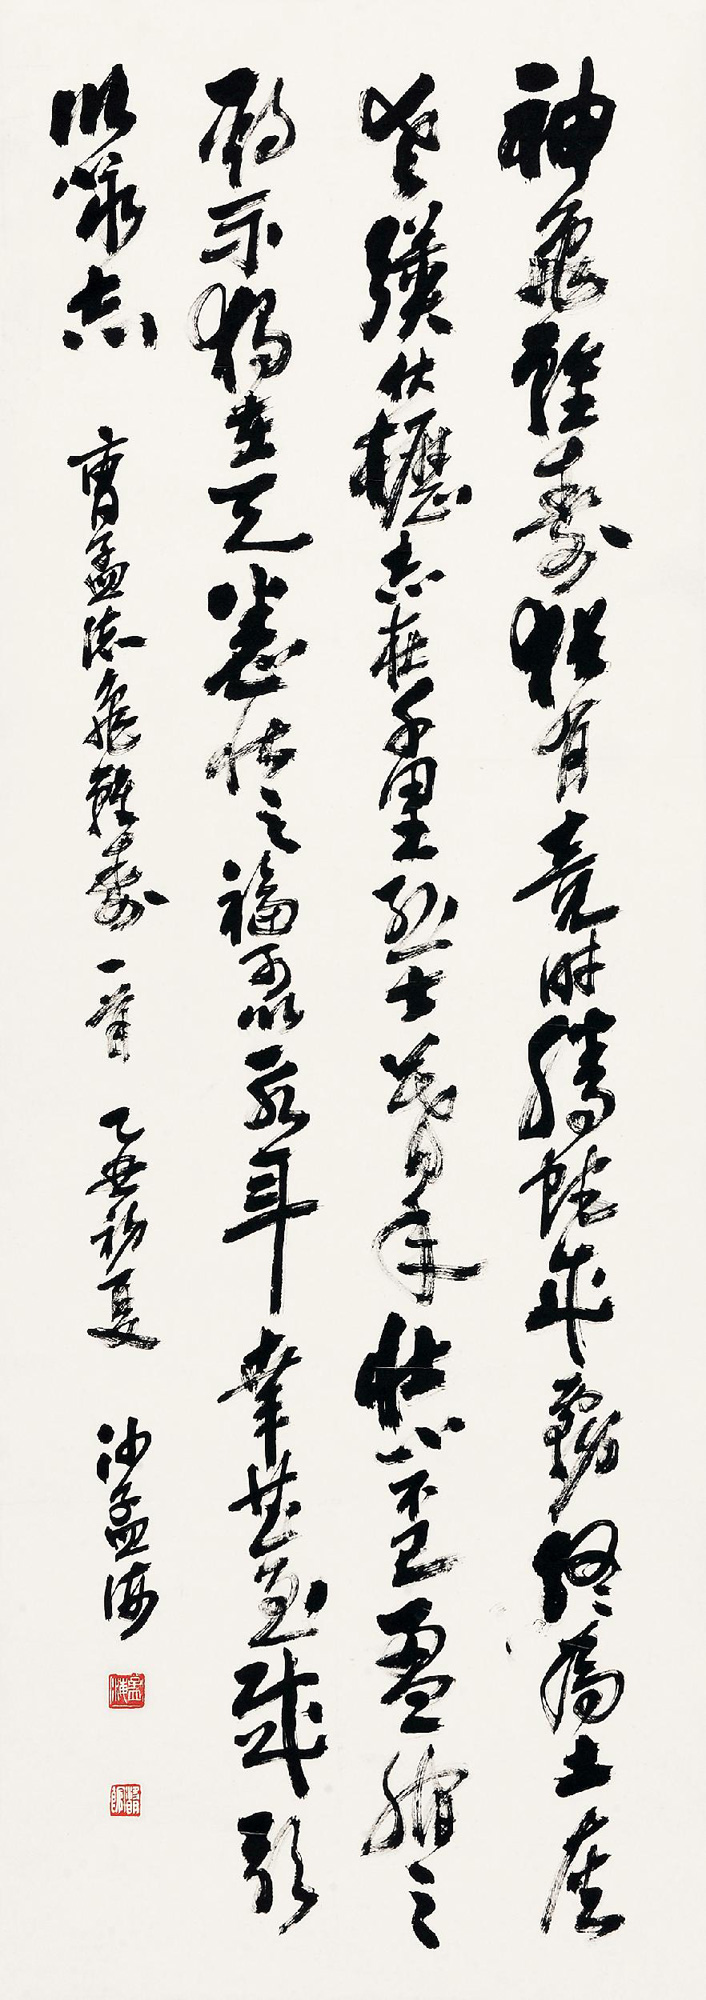 神龜雖壽猶有竟時騰蛇成霧終為土灰
老驥伏櫪志在千里烈士暮年壯心不已盈縮之
期不獨在天養怡之福可以永年幸甚至哉歌
以詠志 曹孟德龜雖壽一首 乙丑初夏 沙孟海
孟海